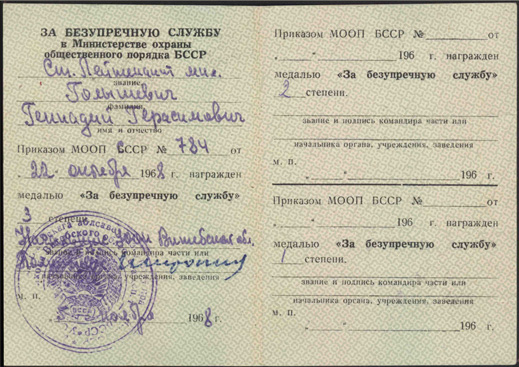 ЗА БЕЗУПРЕЧНУЮ СЛУЖБУ
в Министерстве охраны
общественного порядка БССР
Ст. Лейтенант мил.
звание
Голышевич
фамилия
Геннадий Герасимович
имя и отчество
Приказом МООП БССР № 784 от
„22“ октября 1968 г. награжден
медалью «За безупречную службу»
3 степени.
Витебской обл.
звание и подпись командира части или
начальника органа, учреждения, заведения
м. п.
ноября 1968 г.
Приказом МООП БССР № от
„ “ 196 г. награжден
медалью «За безупречную службу»
2 степени.
звание и подпись командира части или
начальника органа, учреждения, заведения
м. п.
„ “ 196 г.
Приказом МООП БССР № от
„ “ 196 г. награжден
медалью «За безупречную службу»
1 степени.
звание и подпись командира части или
начальника органа, учреждения, заведения
м. п.
„ “ 196 г.